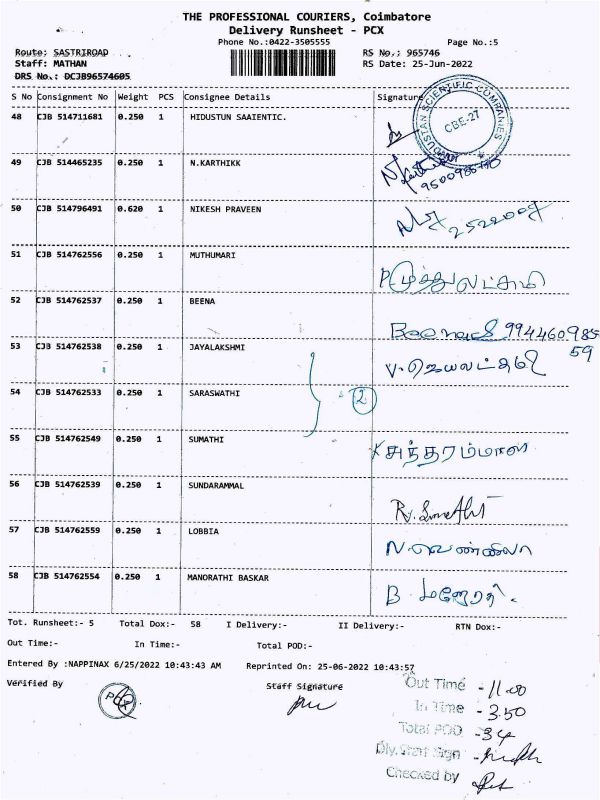 THE PROFESSIONAL COURIERS, Coimbatore
Delivery Runsheet - PCX
Phone No.:0422-3505555 Page No.:5
Route: SASTRIROAD RS No.: 965746
Staff: MATHAN RS Date: 25-Jun-2022
DRS No.: DCJB96574605
S No Consignment No Weight PCS Consignee Details Signature
HINDUSTAN SCIENTIFIC COMPANIES
CBE-27
48 CJB 514711681 0.250 1 HIDUSTUN SAAIENTIC.
49 CJB 514465235 0.250 1 N.KARTHIKK
50 CJB 514796491 0.620 1 NIKESH PRAVEEN
51 CJB 514762556 0.250 1 MUTHUMARI
P. முத்துலட்சுமி
52 CJB 514762537 0.250 1 BEENA
Beena 994460985
59
53 CJB 514762538 0.250 1 JAYALAKSHMI
V. ஜெயலட்சுமி
54 CJB 514762533 0.250 1 SARASWATHI
2
55 CJB 514762549 0.250 1 SUMATHI
சுந்தரம்மாள்
56 CJB 514762539 0.250 1 SUNDARAMMAL
57 CJB 514762559 0.250 1 LOBBIA
N. வெண்ணிலா
58 CJB 514762554 0.250 1 MANORATHI BASKAR
B
Tot. Runsheet:- 5 Total Dox:- 58 I Delivery:- II Delivery:- RTN Dox:-
Out Time:- In Time:- Total POD:-
Entered By :NAPPINAX 6/25/2022 10:43:43 AM Reprinted On: 25-06-2022 10:43:57
Verified By Staff Signature
PCX
Out Time - 11.00
In Time - 3.50
Total POD - 34
Dly. Staff Sign
Checked by